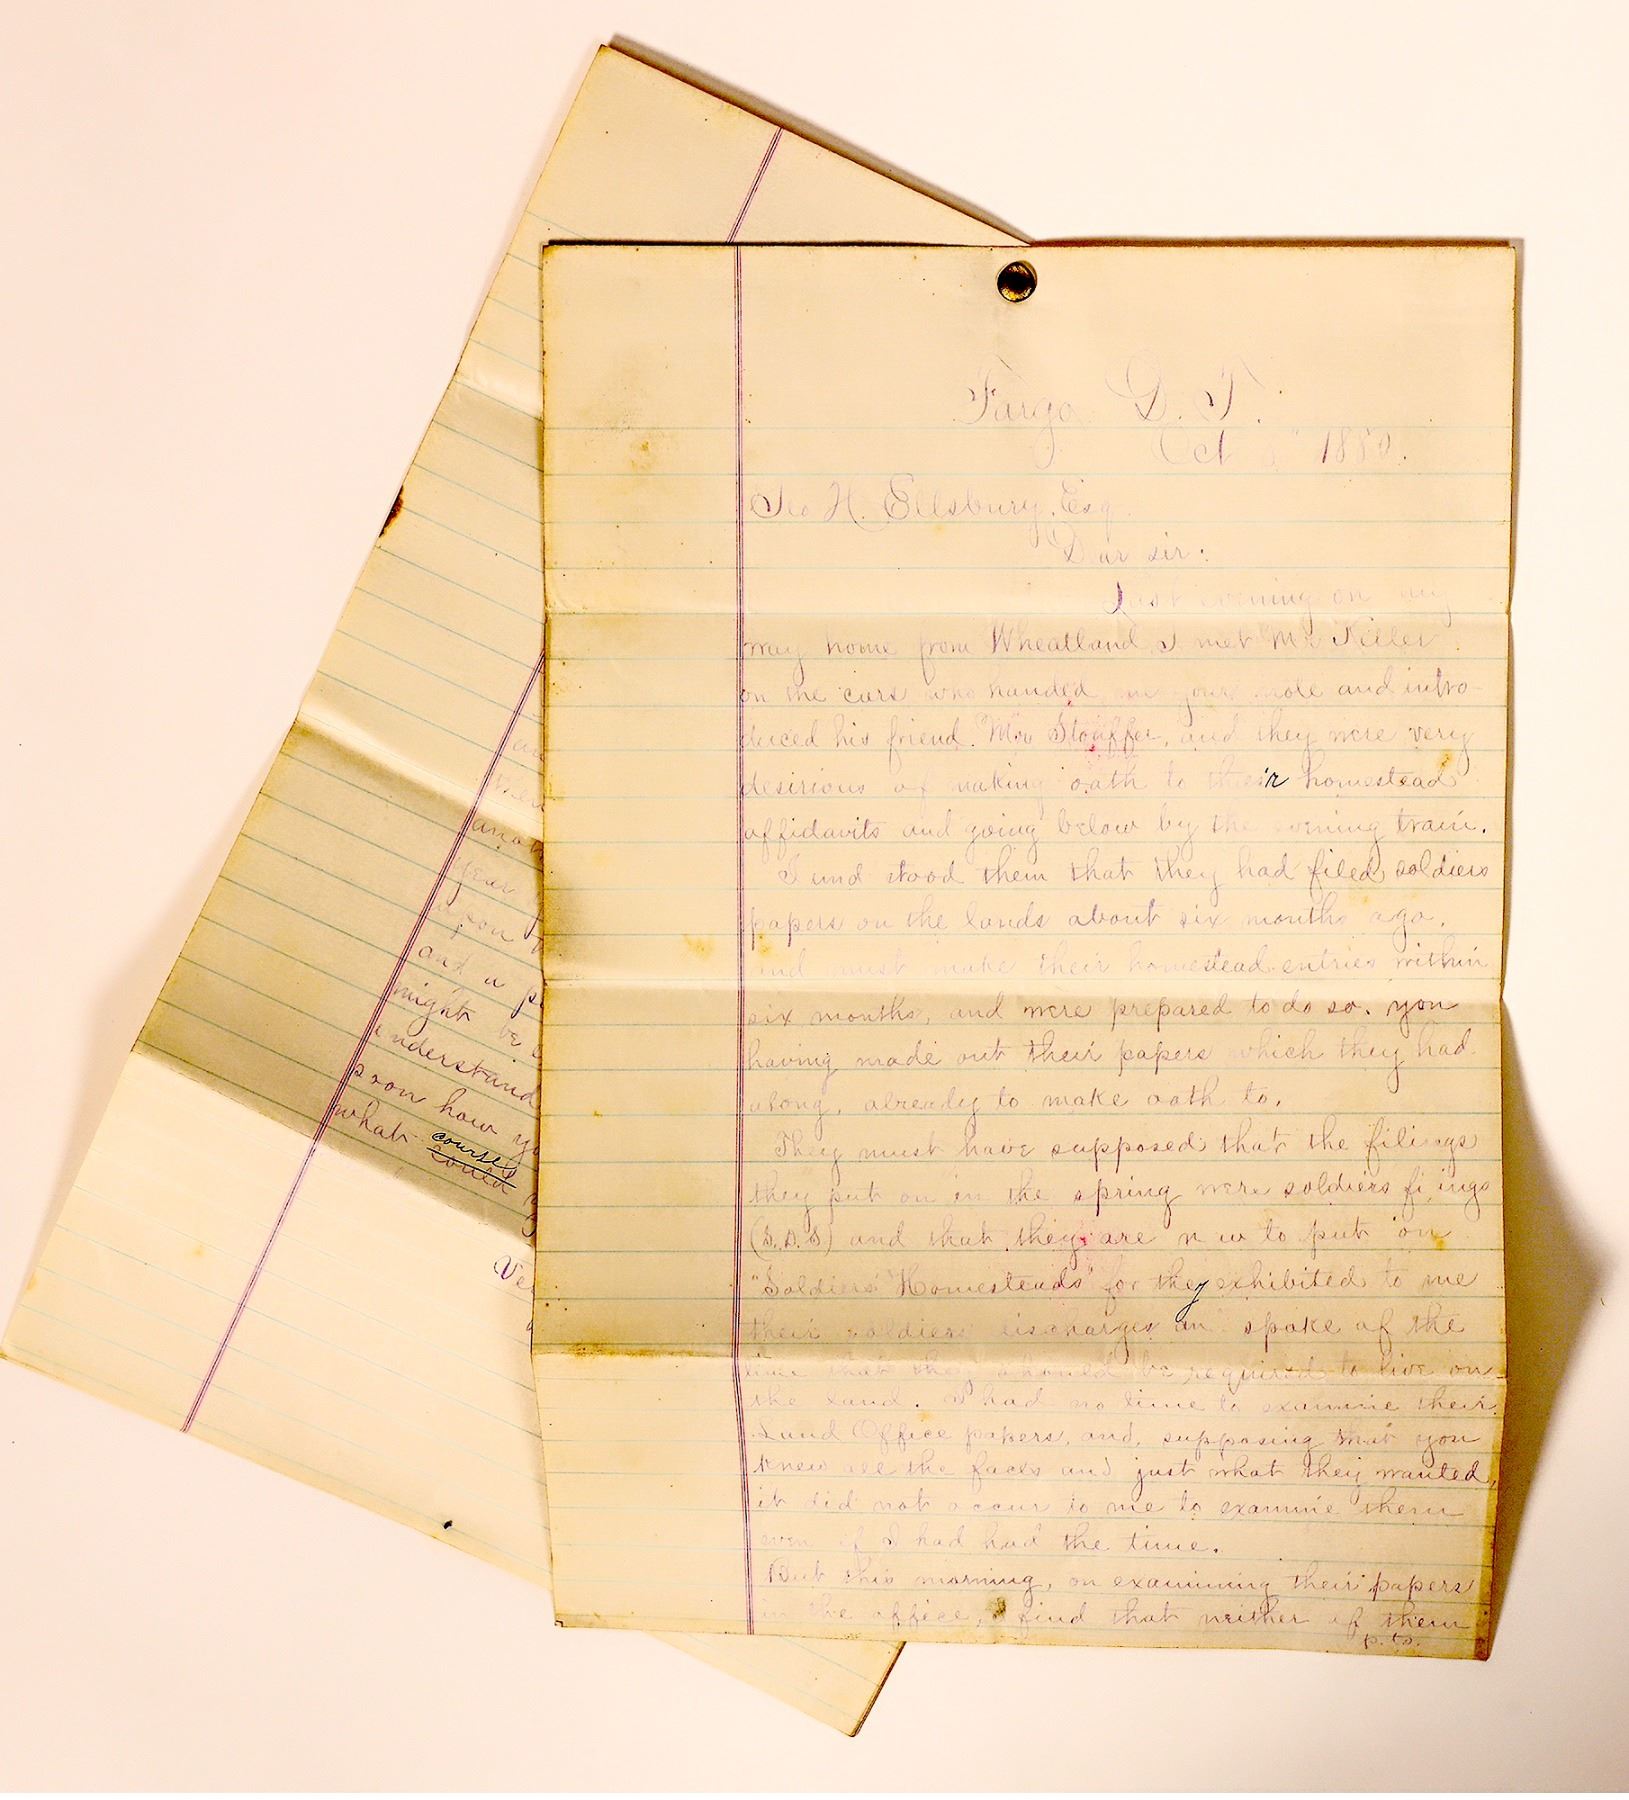 Fargo D. T.
Oct 1880.
Geo H. Ellsbury, Esq.
Dear sir:
Last evening on my
way home from Wheatland I met Mr Keller
on the cars who handed me your note and intro-
duced his friend Mr Stouffer, and they were very
desirious of making oath to their homestead
affidavits and going below by the evening train.
I und stood them that they had filed soldiers
papers on the lands about six months ago,
and must make their homestead entries within
six months, and were prepared to do so. you
having made out their papers which they had
along, already to make oath to.
They must have supposed that the filings
they put on in the spring were soldiers filings
(S.D.S) and that they are now to put on
"Soldiers' Homesteads" for they exhibited to me
their soldiers discharges and spoke of the
time that they should be required to live on
the land. I had no time to examine their
Land Office papers, and, supposing that you
knew all the facts and just what they wanted,
it did not occur to me to examine them
even if I had had the time.
But this morning, on examining their papers
in the office, I find that neither of them
p.t.o.
then
anot
year
upon
and a p
might be
understand
soon how yo
what course
could
Ve